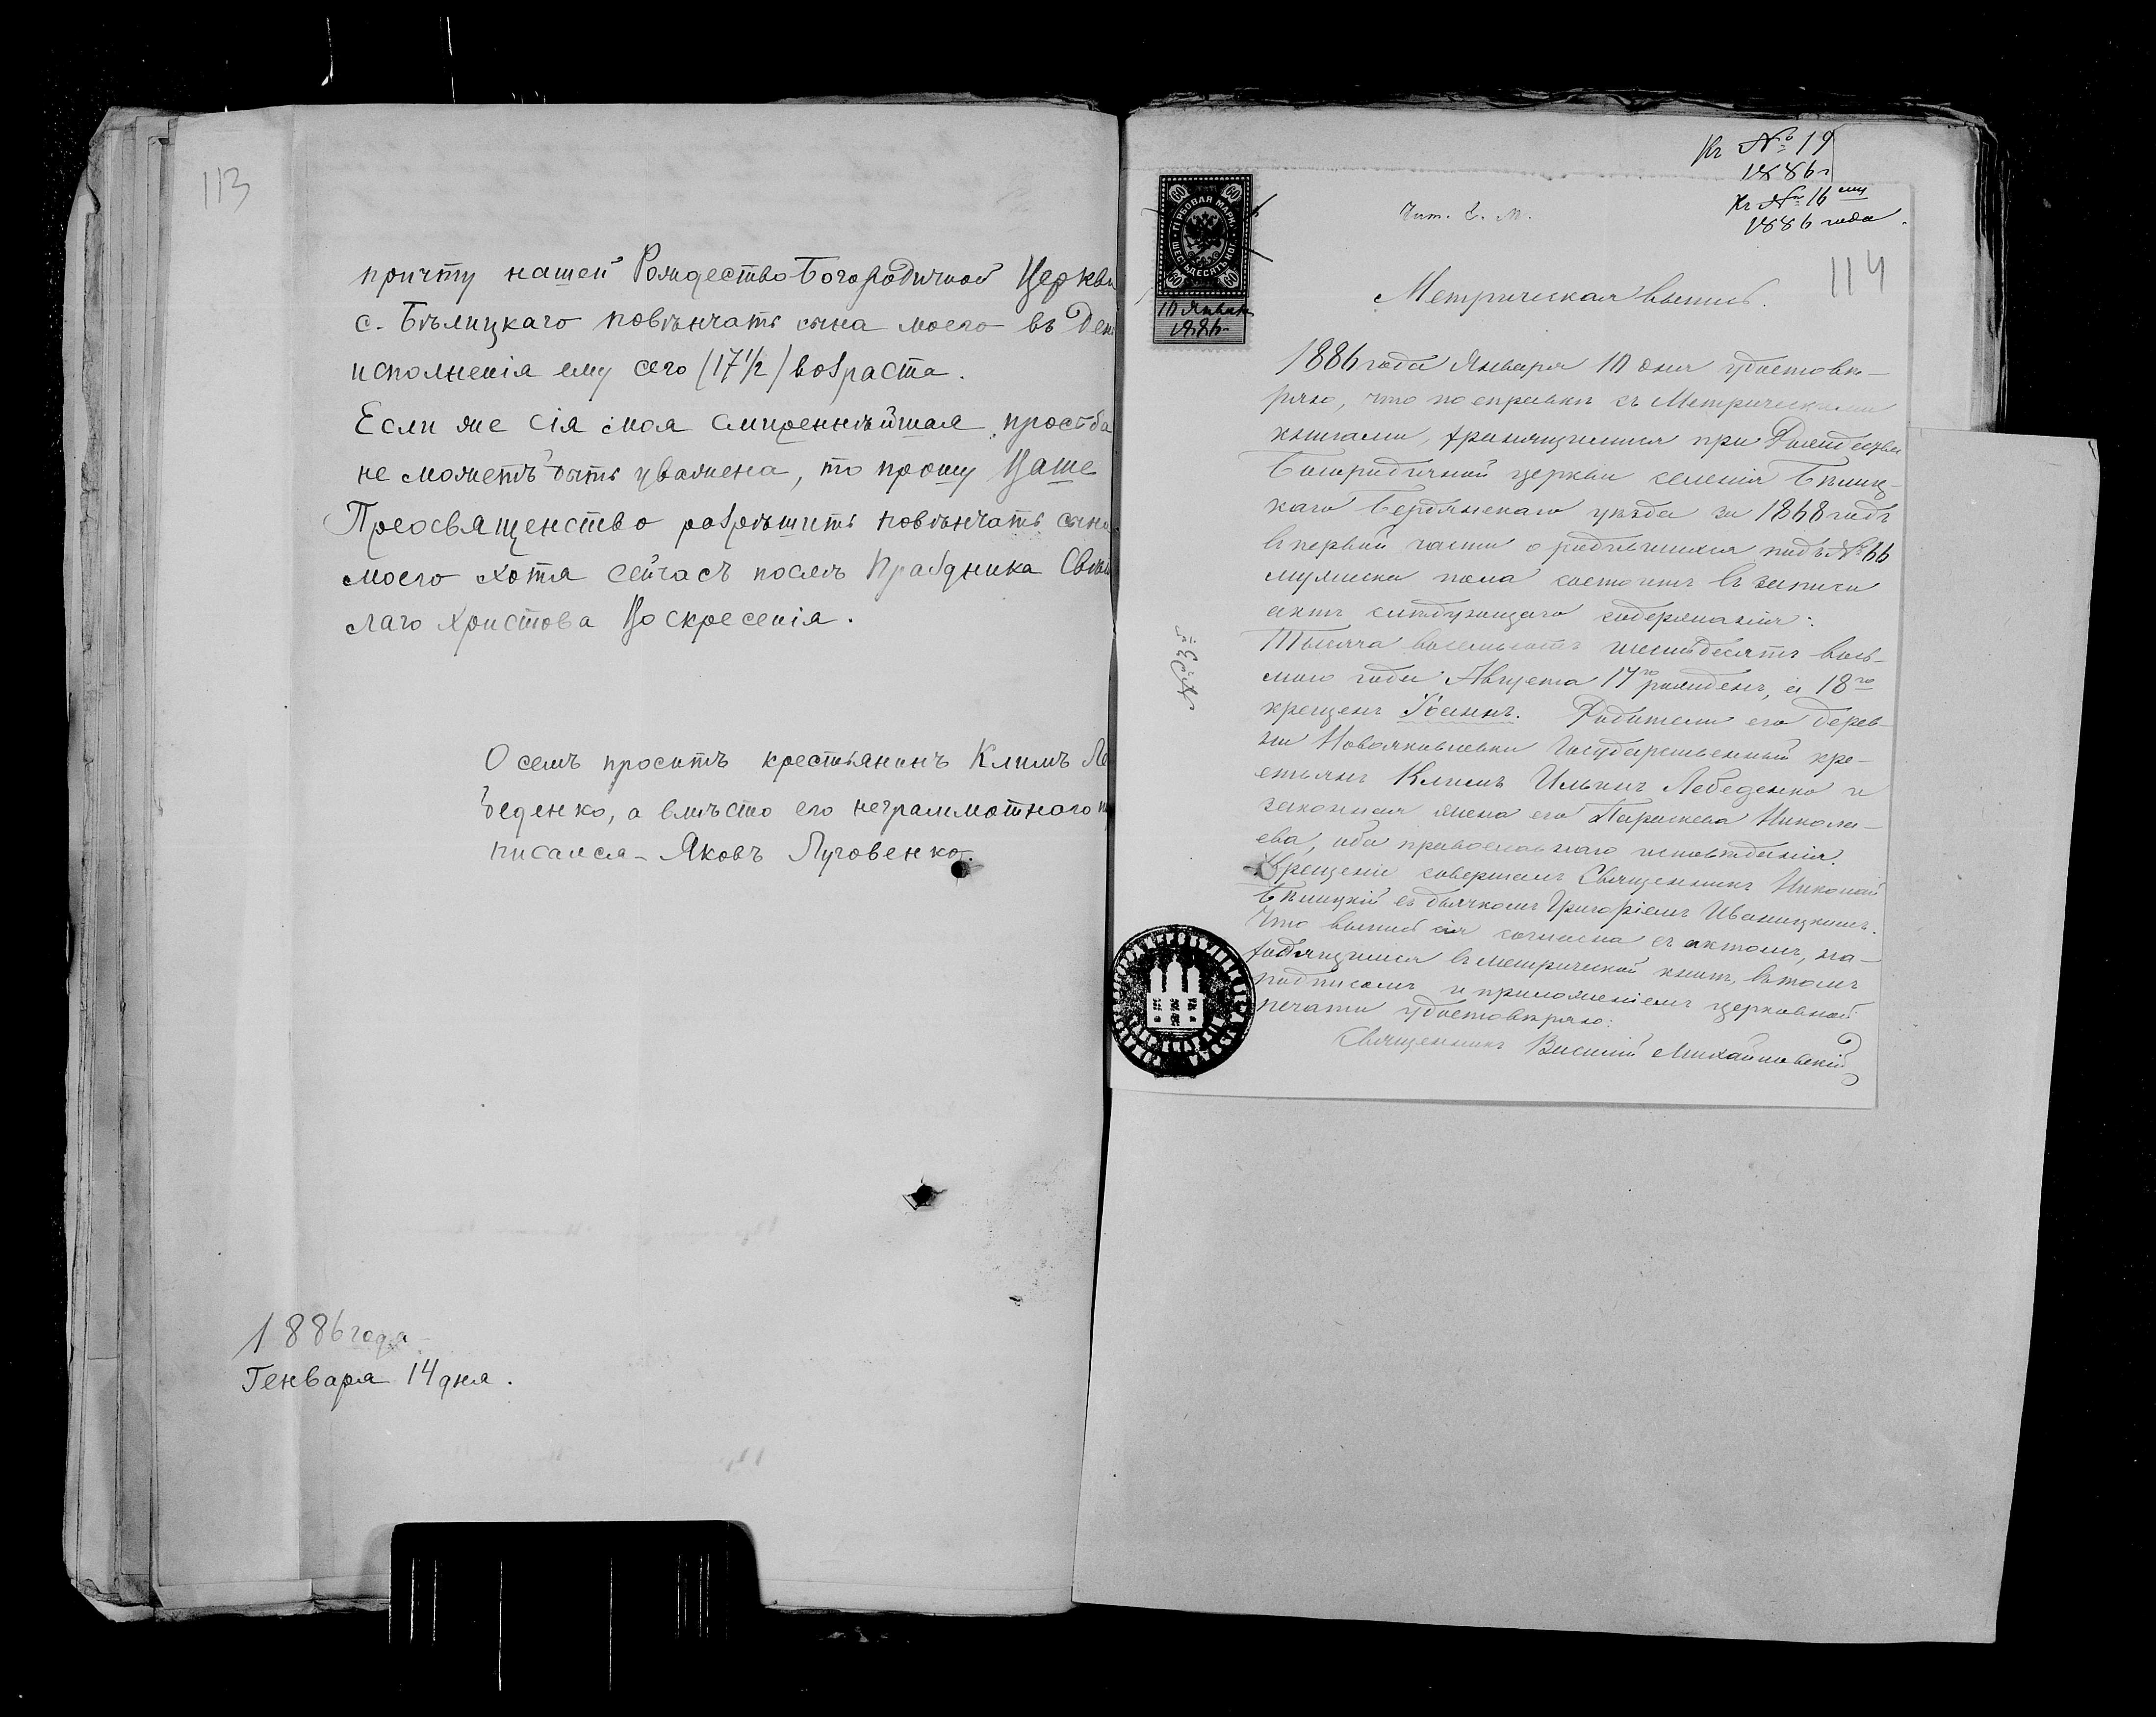 113
причту нашей Рождество Богородичной Церкви
с. Бѣлицкаго повѣнчать сына моего въ ден
исполненія ему сего (17 1/2) возраста.
Если же сія моя смиреннѣйшая просьба
не можетъ быть уважена, то прошу Ваше
Преосвященство разрѣшить повѣнчать сына
моего хотя сейчасъ послѣ Праздника Свѣт
лаго Христова Воскресенія.
О семъ проситъ крестьянинъ Климъ Ле
беденко, а вмѣсто его неграммотнаго
писался - Яковъ Луговенко.
1886 года
Генваря 14 дня.
Къ № 19
1886 г
Къ № 16
1886 года.
114
60 60
ГЕРБОВАЯ МАРКА
ШЕСТЬДЕСЯТЪ КОП.
60 60
10 Января
1886
Метрическая выпись.
1886 года Января 10 дня удостовѣ-
ряю, что по справкѣ съ Метрическими
книгами, хранящимися при Рождество
Богородичной церкви селенія Бѣлиц-
каго Бердянскаго уѣзда за 1868 годъ
въ первой части о родившихся подъ № 66
мужеска пола состоитъ въ записи
актъ слѣдующаго содержанія:
Тысяча восемьсотъ шестьдесятъ вось-
мого года Августа 17го рожденъ, а 18го
крещенъ Іоаннъ. Родители его дерев-
ни Новояковлевки Государственный кре-
стьянъ Климъ Ильинъ Лебеденко и
законная жена его Параскева Никола-
ева, оба православнаго исповѣданія.
Крещеніе совершалъ Священникъ Николай
Бѣлицкій съ дьячкомъ Григоріемъ Иваницкимъ.
Что выпись сія согласна съ актомъ, на-
ходящимся въ метрической книгѣ, въ томъ
подписомъ и приложеніемъ церковной
печати удостовѣряю:
Священникъ Василій Михайловскій